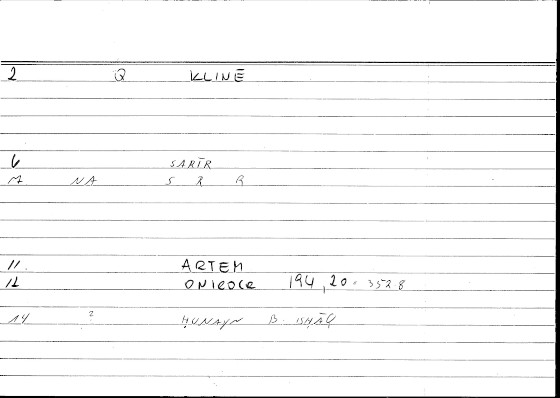 2 Q KLINĒ
6 SARĪR
M NA S R R
11 ARTEM
12 ONIROCR 194,20. 352 8
14 ? ḤUNAYN B. ISḤĀQ